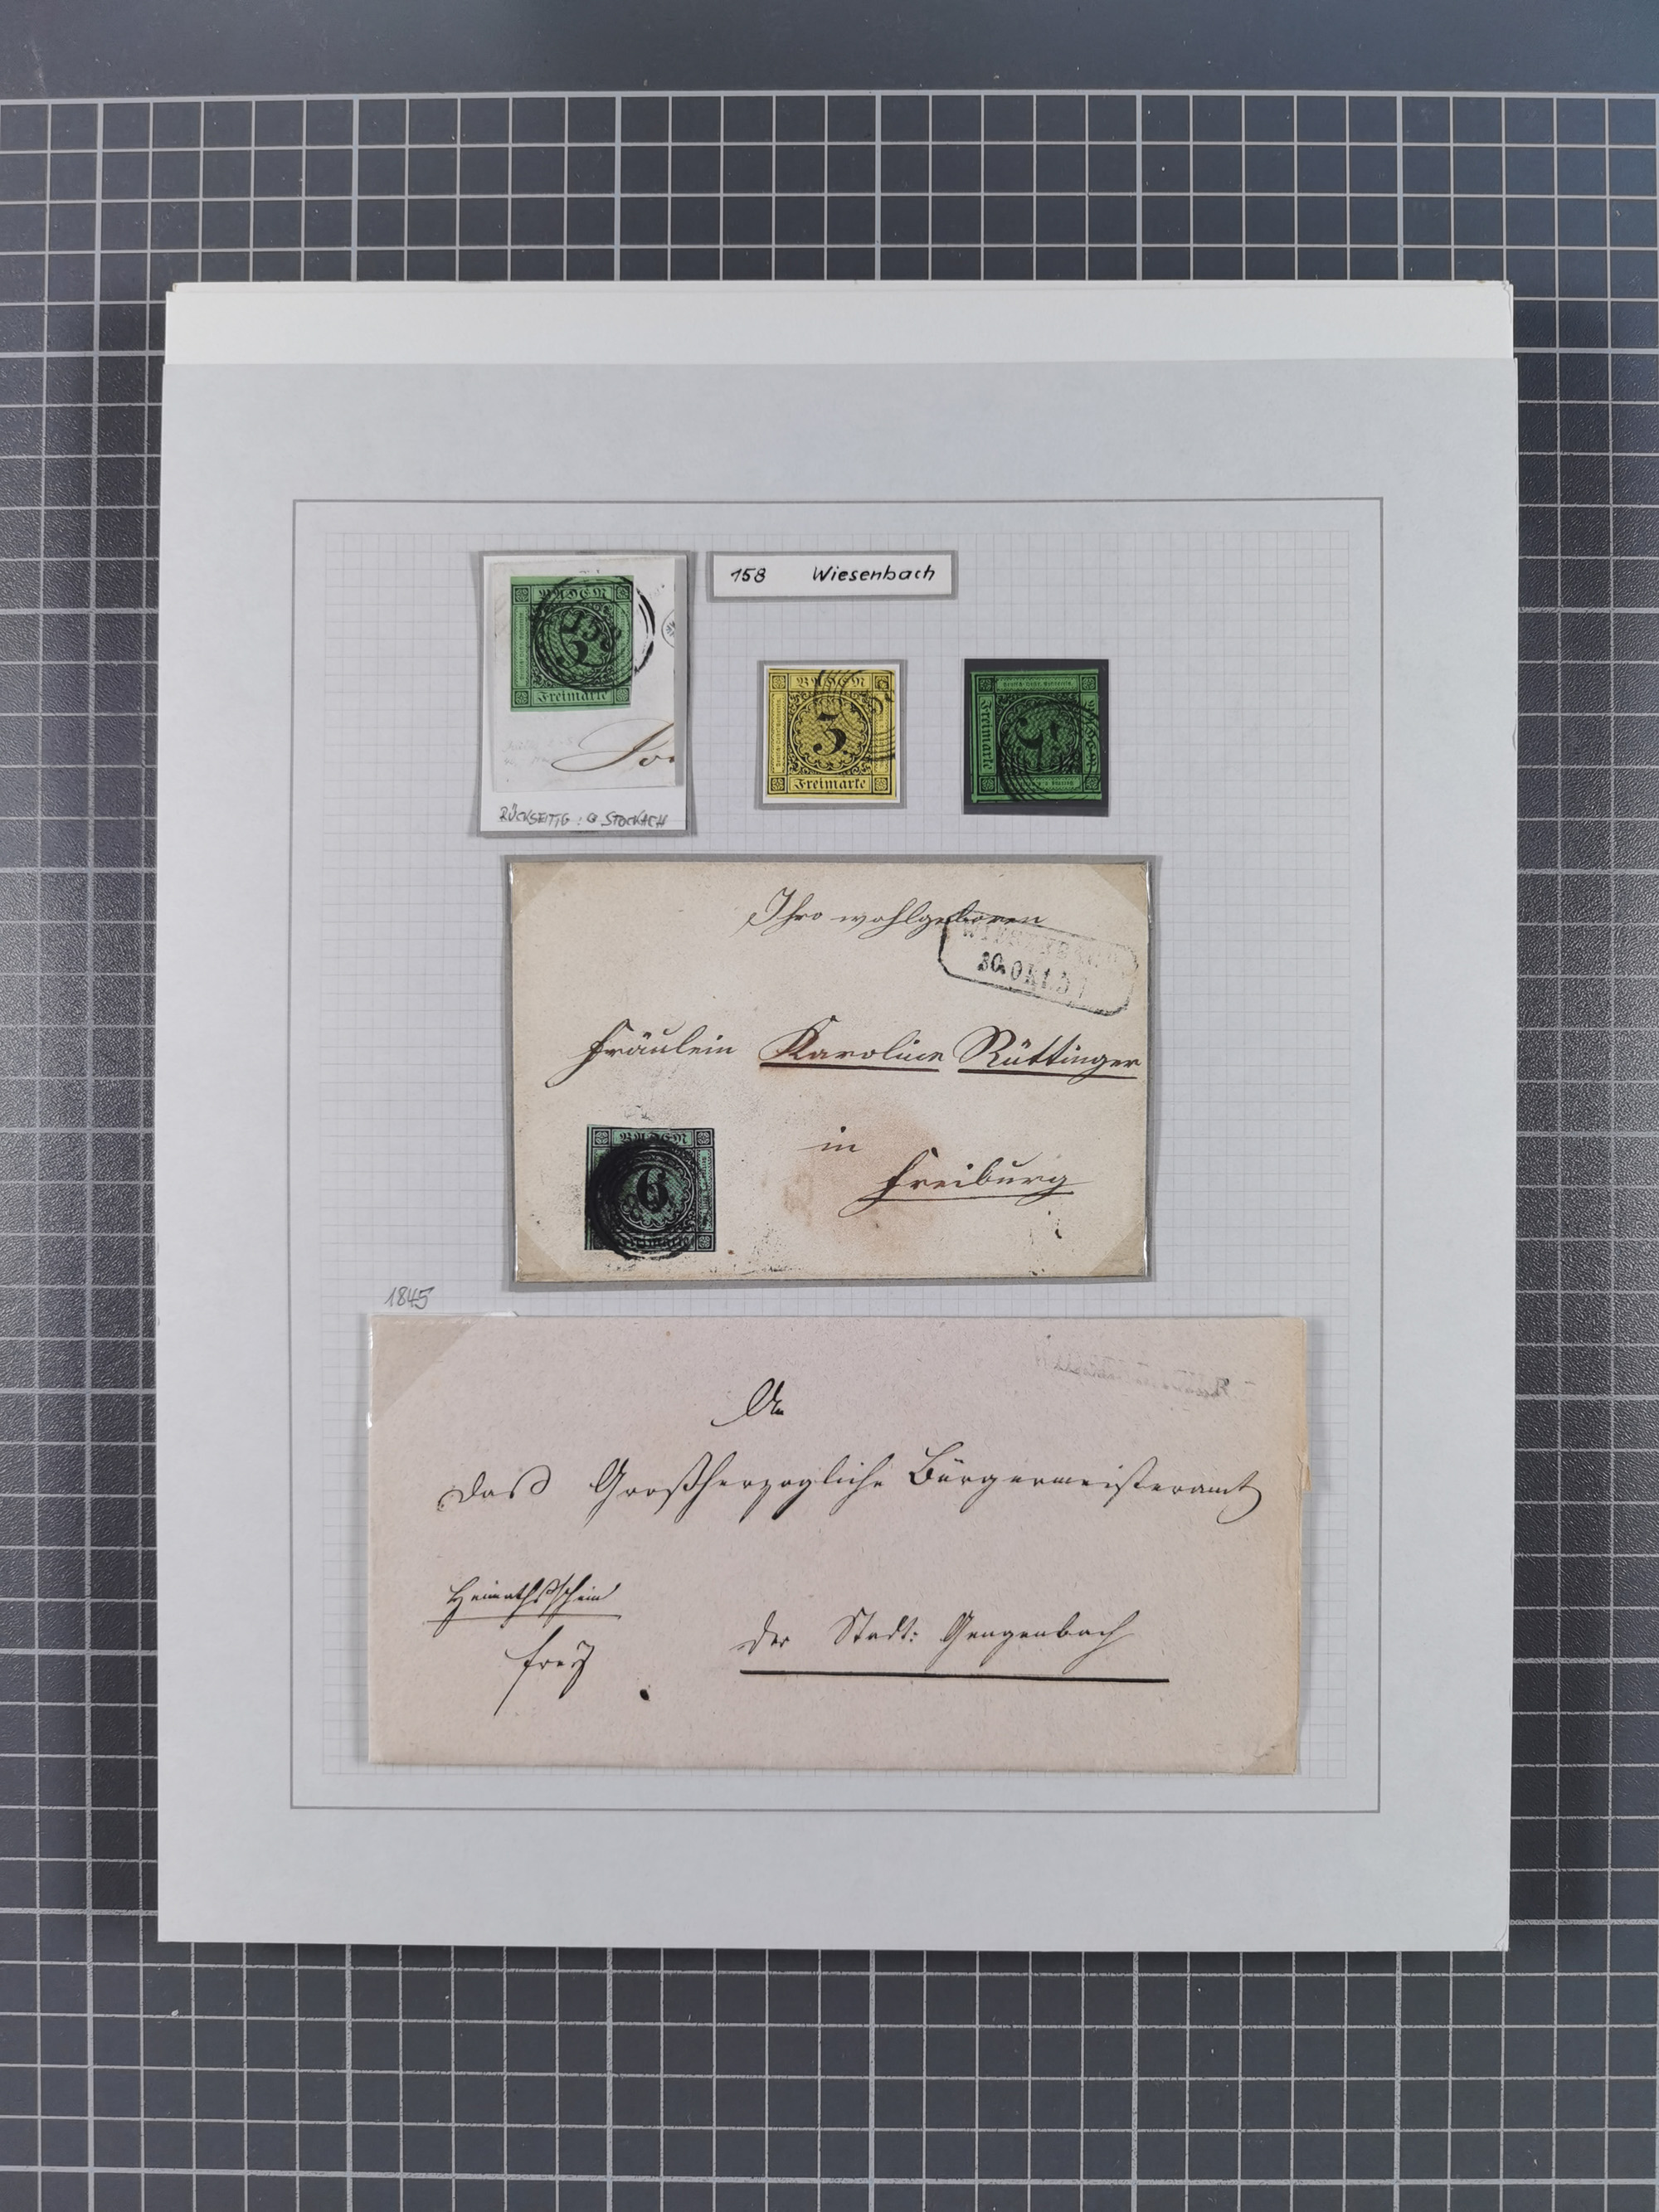 158 Wiesenbach
BADEN
158
3
Freimarke
So
RÜCKSEITIG: STOCKACH
BADEN
3
Freimarke
Freimarke
3
Ihro wohlgeboren
WIESENBACH
30. OKT. 51
Fräulein Karoline Rüttinger
in
Freiburg
BADEN
6
Freimarke
1845
An
das Großherzogliche Bürgermeisteramt
Heimathsschein
frey
der Stadt: Gengenbach